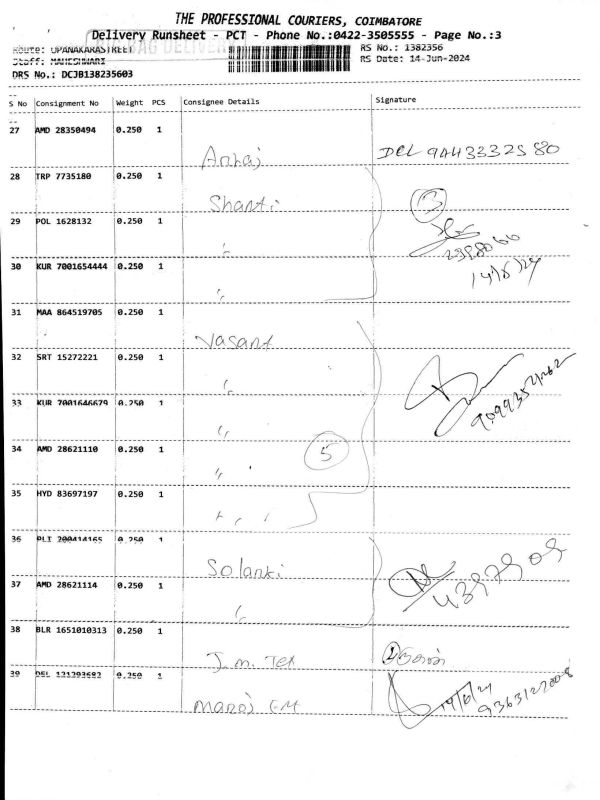 THE PROFESSIONAL COURIERS, COIMBATORE
Delivery Runsheet - PCT - Phone No.:0422-3505555 - Page No.:3
Route: UPANAKARASTREET
RS No.: 1382356
Staff: MAHESHWARI
RS Date: 14-Jun-2024
DRS No.: DCJB138235603
S No Consignment No Weight PCS Consignee Details Signature
27 AMD 28350494 0.250 1
DEL 9443332580
28 TRP 7735180 0.250 1
Shanti
3
29 POL 1628132 0.250 1
"
30 KUR 7001654444 0.250 1
"
31 MAA 864519705 0.250 1
Vasant
32 SRT 15272221 0.250 1
"
33 KUR 7001646679 0.250 1
"
34 AMD 28621110 0.250 1
"
5
35 HYD 83697197 0.250 1
"
36 PLI 200414165 0.250 1
Solanki
37 AMD 28621114 0.250 1
"
38 BLR 1651010313 0.250 1
J.M. Tex
39 DEL 121293682 0.250 1
Manoj EM